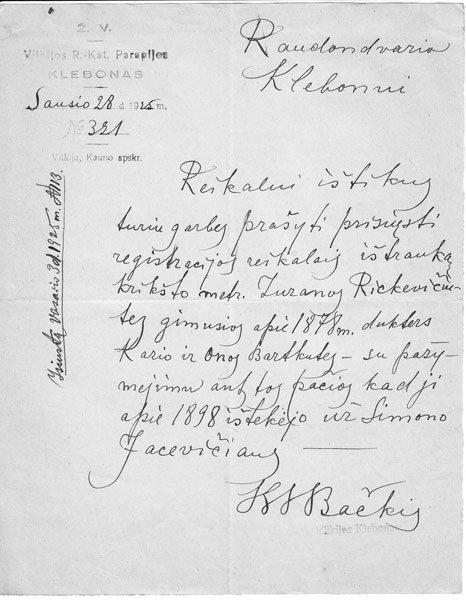 Ž. V.
Vilkijos R.-Kat. Parapijos
KLEBONAS
Sausio 28 d. 1925 m.
№ 321
Vilkija, Kauno apskr.
Raudondvario
Klebonui
Reikalui ištikus
turiu garbės prašyti prisiųsti
registracijos reikalais ištrauką
krikšto metr. Zuzanos Rickevičiu-
tės gimusios apie 1878 m. dukters
Kario ir Onos Bartkutės – su pažy-
mėjimu ant tos pačios kad ji
apie 1898 ištekėjo už Simono
Jacevičiaus
Bačkis
Vilkijos Klebonas
Išsiųsta Vasario 3 d. 1925 m. №13.